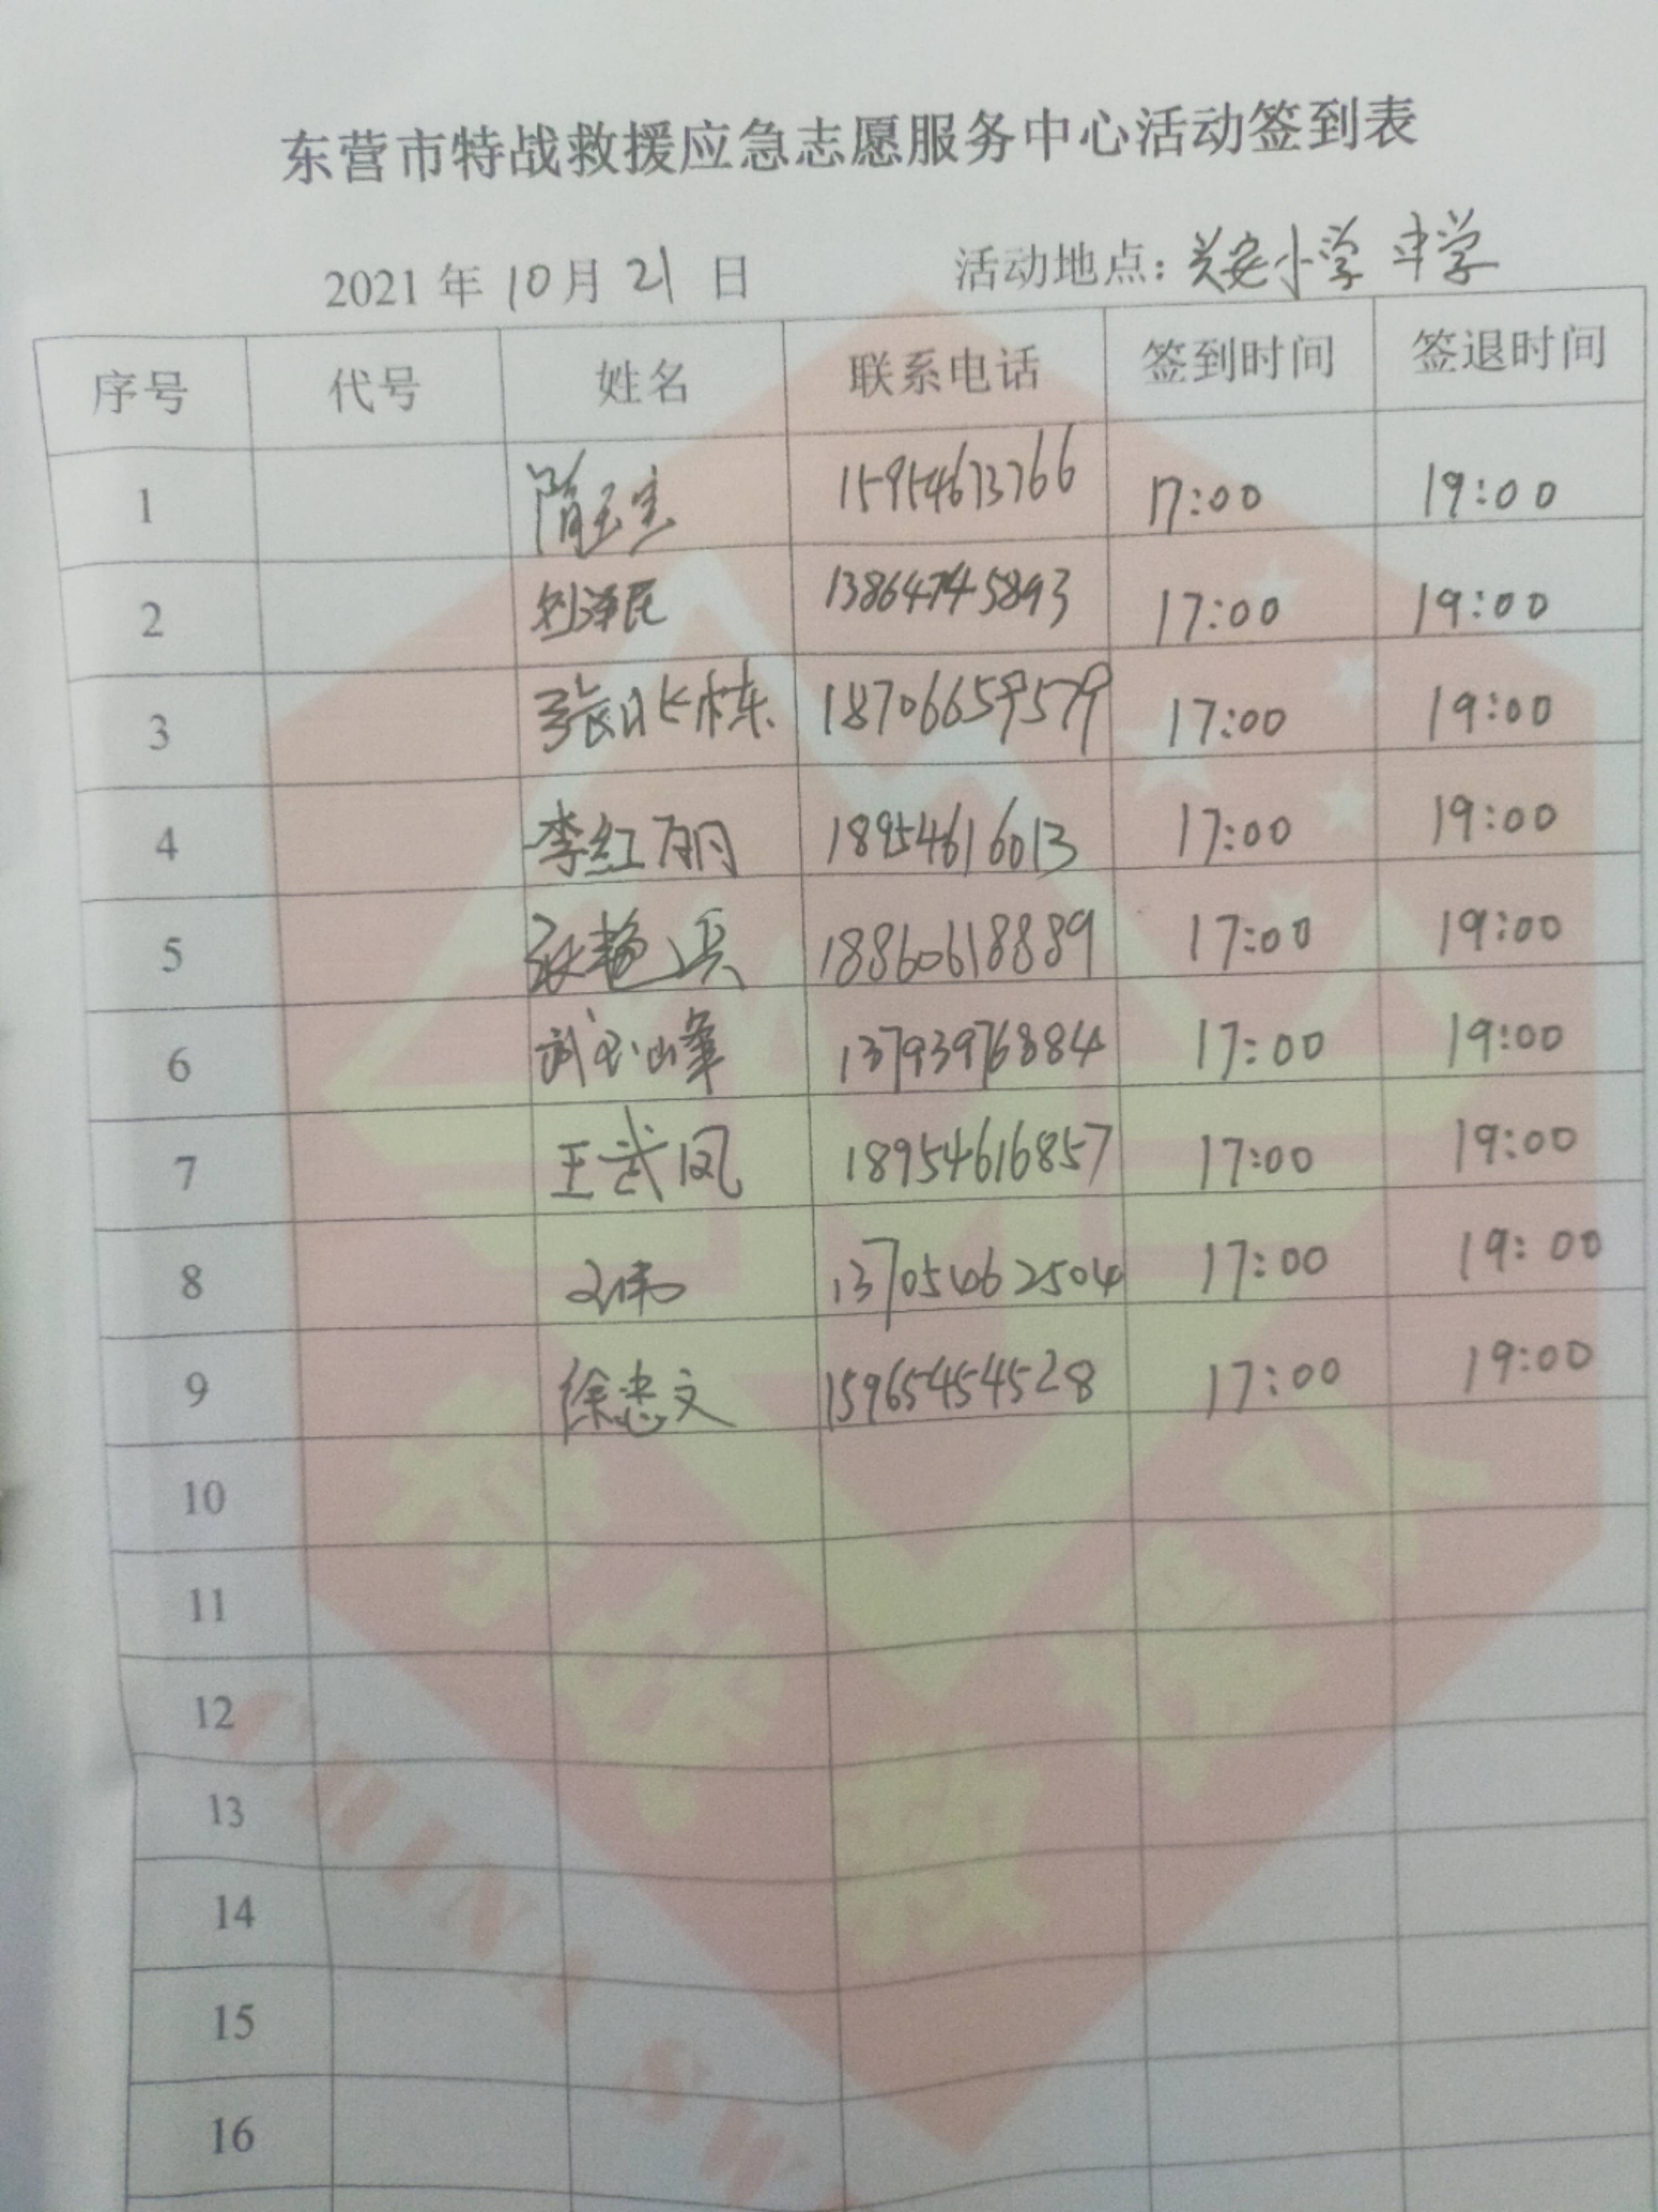 东营市特战救援应急志愿服务中心活动签到表
2021 年 10 月 21 日 活动地点: 兴安小学 中学
序号 代号 姓名 联系电话 签到时间 签退时间
1 隋玉宝 15954673766 17:00 19:00
2 刘泽民 13864745893 17:00 19:00
3 张 栋 18706659579 17:00 19:00
4 李红丽 18954616013 17:00 19:00
5 张艳兵 18860618889 17:00 19:00
6 武玉峰 13793976884 17:00 19:00
7 王武凤 18954616857 17:00 19:00
8 13705462504 17:00 19:00
9 徐忠文 15965454528 17:00 19:00
10
11
12
13
14
15
16
特战救援队
CHINA SW